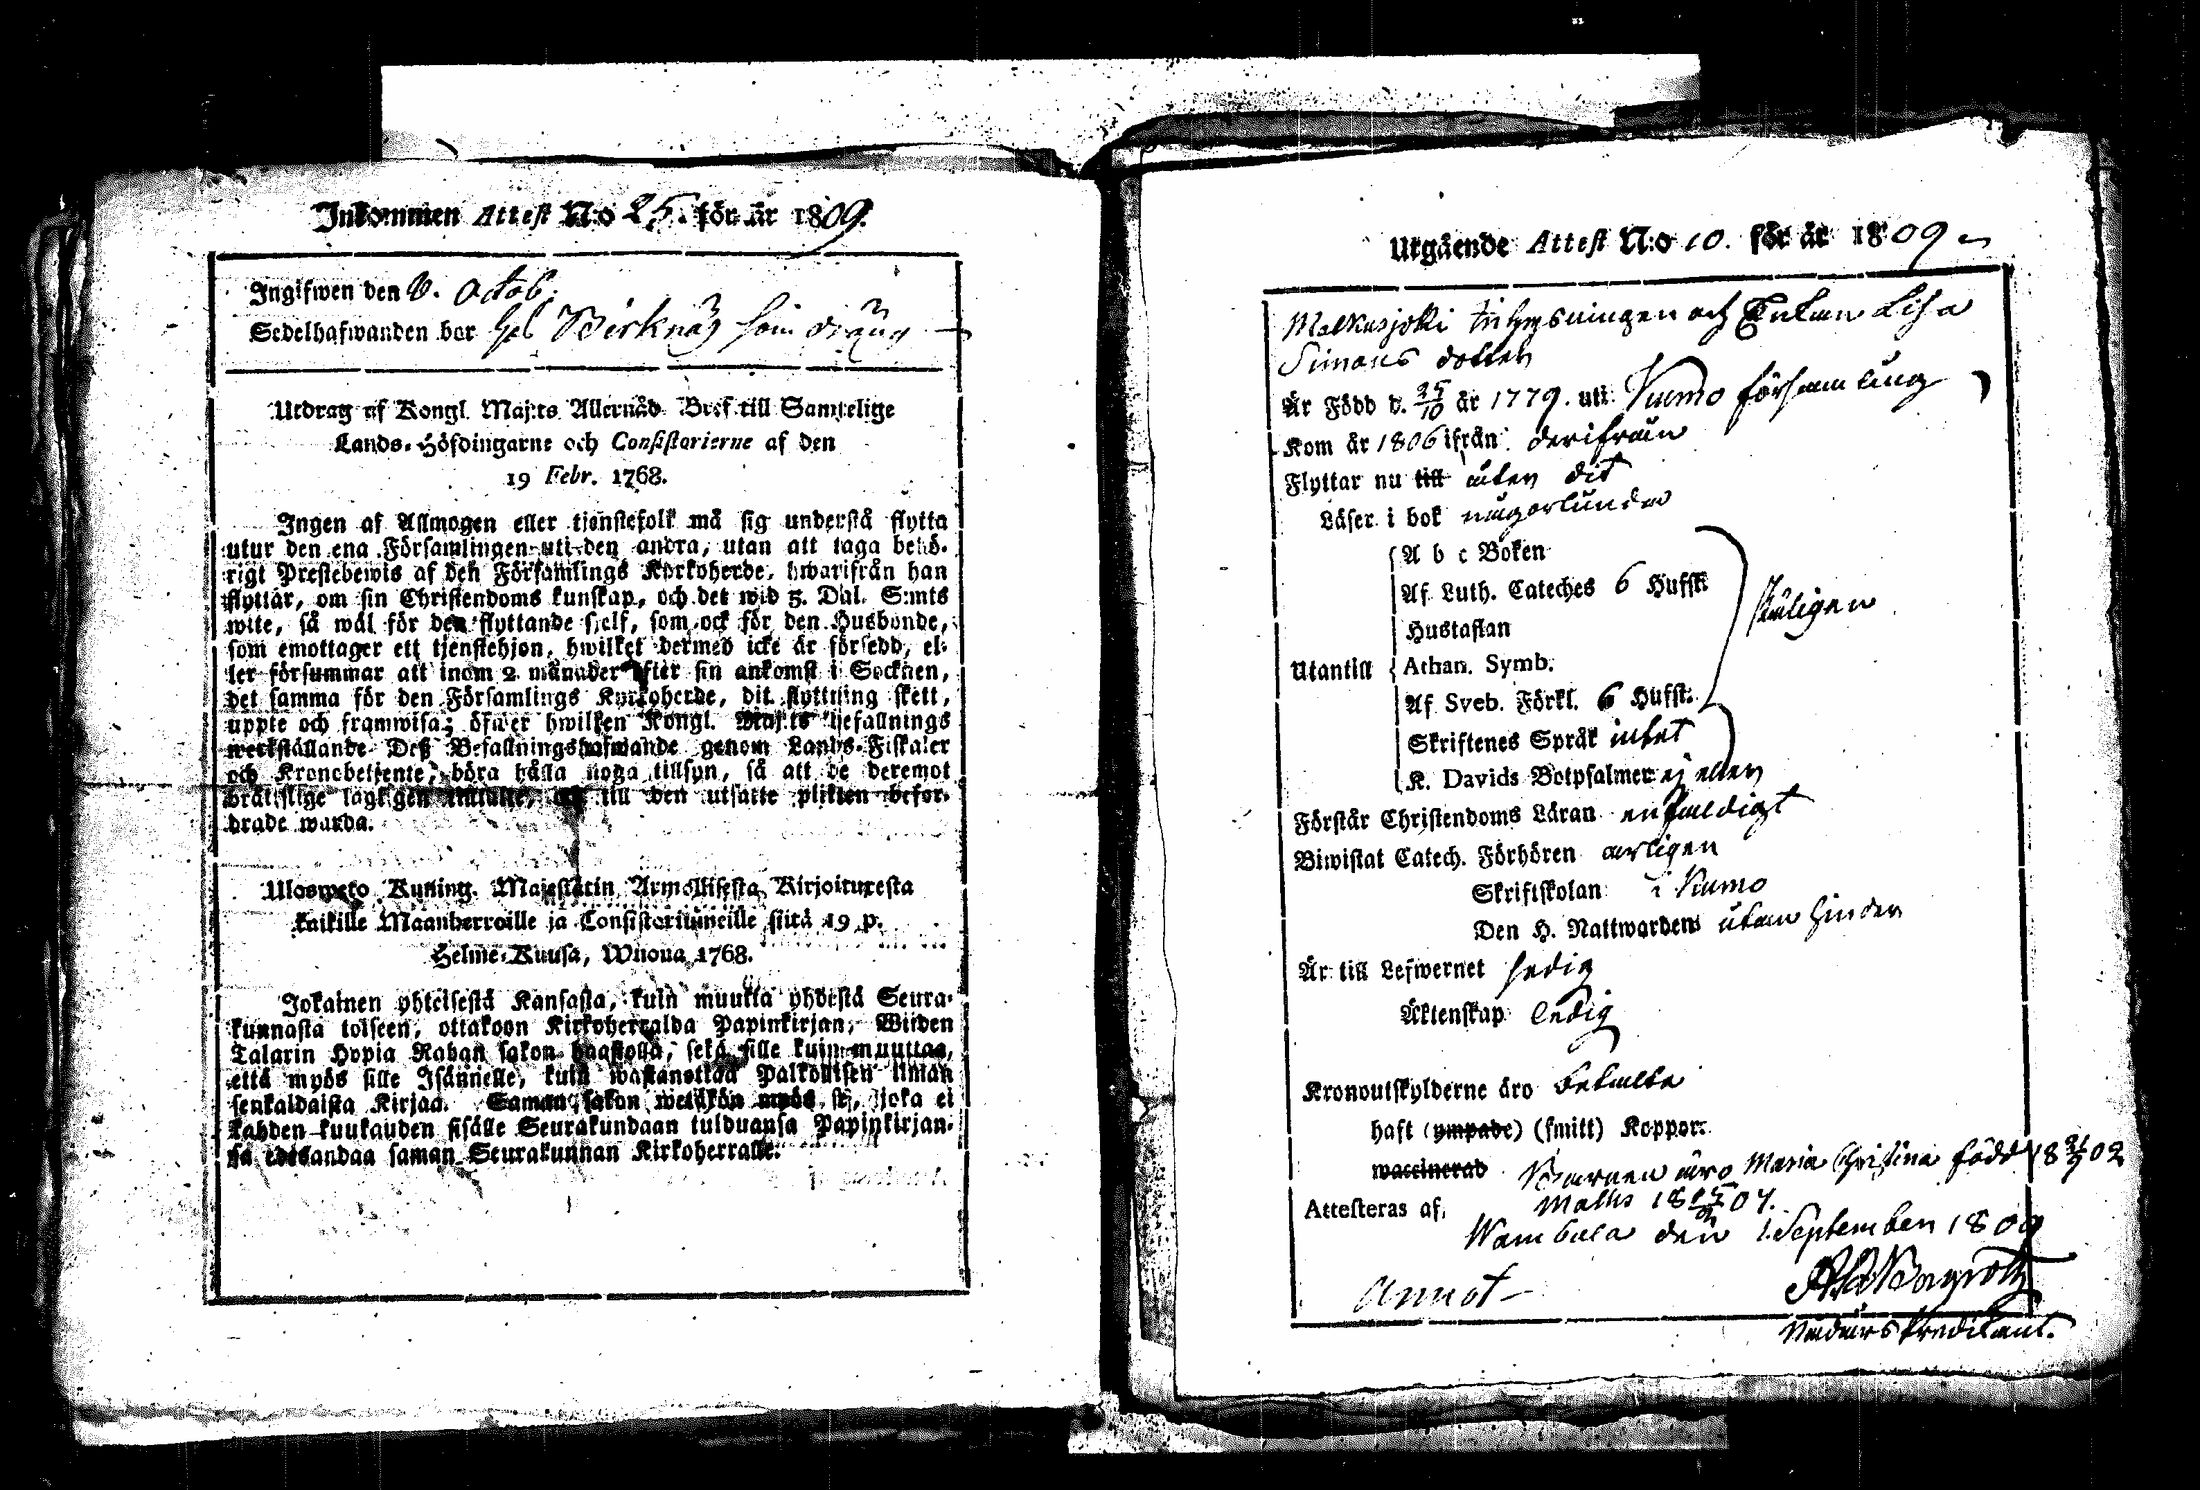 Inkommen Attest N:o 25. för år 1809.
Ingifwen den 8. Octob.
Sedelhafwanden bor hos Birknäs som dräng
Utdrag af Kongl. Maj:ts Allernåd. Bref till Samtelige
Lands-Höfdingarne och Consistorierne af den
19 Febr. 1768.
Ingen af Allmogen eller tjenstefolk må sig understå flytta
utur den ena Församlingen uti den andra, utan att taga behö-
rigt Prestebewis af den Församlings Kyrkoherde, hwarifrån han
flyttar, om sin Christendoms kunskap, och det wid 5. Dal. S:mts
wite, så wäl för den flyttande sjelf, som ock för den Husbonde,
som emottager ett tjenstehjon, hwilket dermed icke är försedd, el-
ler försummar att inom 2 månader efter sin ankomst i Socknen,
det samma för den Församlings Kyrkoherde, dit flyttning skett,
uppte och framwisa; öfwer hwilken Kongl. Maj:ts befallnings
werkställande Deß Befallningshafwande genom Lands-Fiskaler
och Kronobetjente, böra hålla noga tillsyn, så att de deremot
brätslige lagligen tilltalte, och till den utsatte plikten befor-
drade warda.
Ulosweto Kuning. Majestätin Armollisesta Kirjoituxesta
kaikille Maanherroille ja Consistoriumeille siitä 19 p.
Helme-Kuusa, Wuona 1768.
Jokainen yhteisestä Kansasta, kuin muutta yhdestä Seura-
kunnasta toiseen, ottakoon Kirkoherralda Papinkirjan, Wiiden
Talarin Hopia Rahan sakon haastolla, sekä sille kuin muuttaa,
että myös sille Isännelle, kuin wastanottaa Palkollisen ilman
senkaldaista Kirjaa. Saman sakon wetäkön myös se, joka ei
kahden kuukauden sisälle Seurakundaan tulduansa Papinkirjan-
sa edesandaa saman Seurakunnan Kirkoherralle.
Utgående Attest N:o 10. för år 1809
Malkusjoki inhysningen och Enkan Lisa
Simons dotter
Är Född d. 25/10 år 1779. uti Kumo församling
Kom år 1806 ifrån derifrån
Flyttar nu till åter dit
Läser i bok någorlunda
A b c Boken
Af Luth. Cateches 6 Hufst.
Hustaflan
Utantill Athan. Symb.
Af Sveb. Förkl. 6 Hufst.
Skriftenes Språk intet
K. Davids Botpsalmer ej eller
Förstår Christendoms Läran enfaldigt
Biwistat Catech. Förhören årligen
Skriftskolan i Kumo
Den H. Nattwarden utan hinder
Är till Lefwernet sedig
Äktenskap ledig
Kronoutskylderne äro betalte
haft (ympade) (smitt) Koppor.
waccinerad Barnen äro Maria Christina född 18 21/9 02
Attesteras af, Matts 18 15/2 07.
Wambula den 1. September 1809
Annot